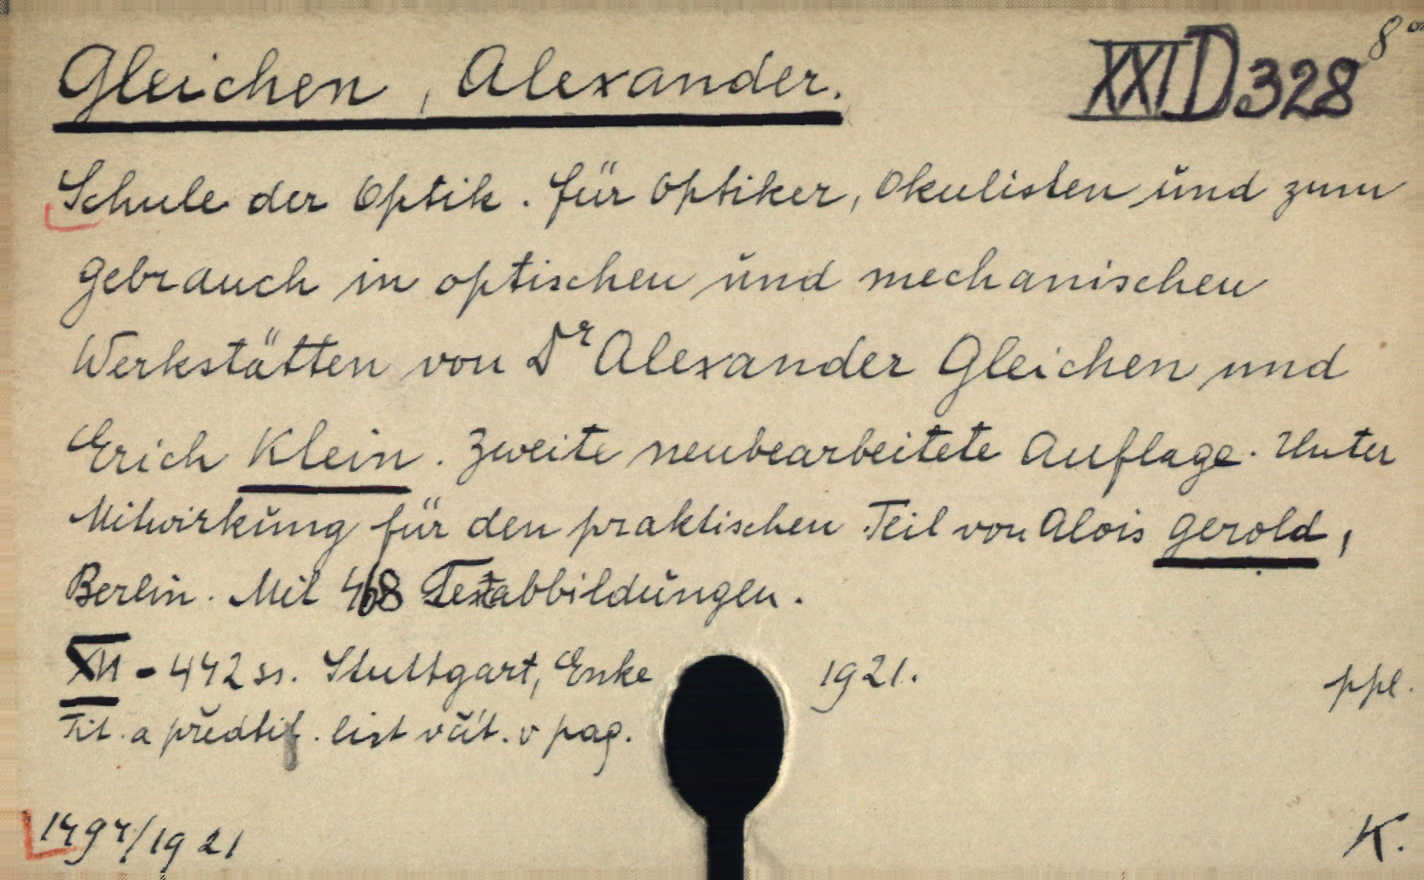 Gleichen, Alexander. XXI D 328 8°
Schule der Optik. Für Optiker, Okulisten und zum
Gebrauch in optischen und mechanischen
Werkstätten von Dr Alexander Gleichen und
Erich Klein. Zweite neubearbeitete Auflage. Unter
Mitwirkung für den praktischen Teil von Alois Gerold,
Berlin. Mit 468 Textabbildungen.
XII - 442 ss. Stuttgart, Enke 1921. ppl.
Tit. a předtit. list včít. v pag.
1797/1921 K.